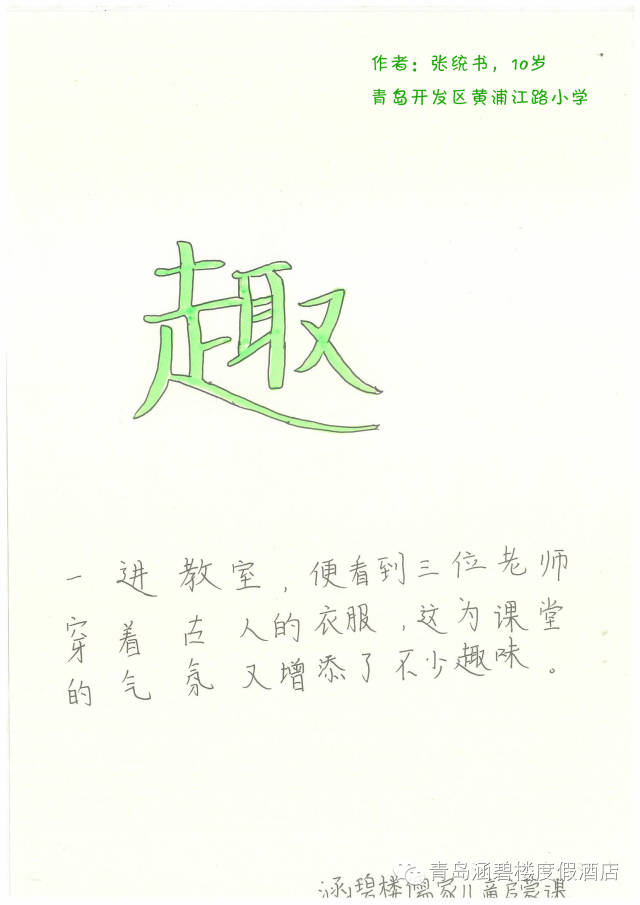 作者：张统书，10岁
青岛开发区黄浦江路小学
趣
一进教室，便看到三位老师
穿着古人的衣服，这为课堂
的气氛又增添了不少趣味。
青岛涵碧楼度假酒店
涵碧楼儒家儿童启蒙课